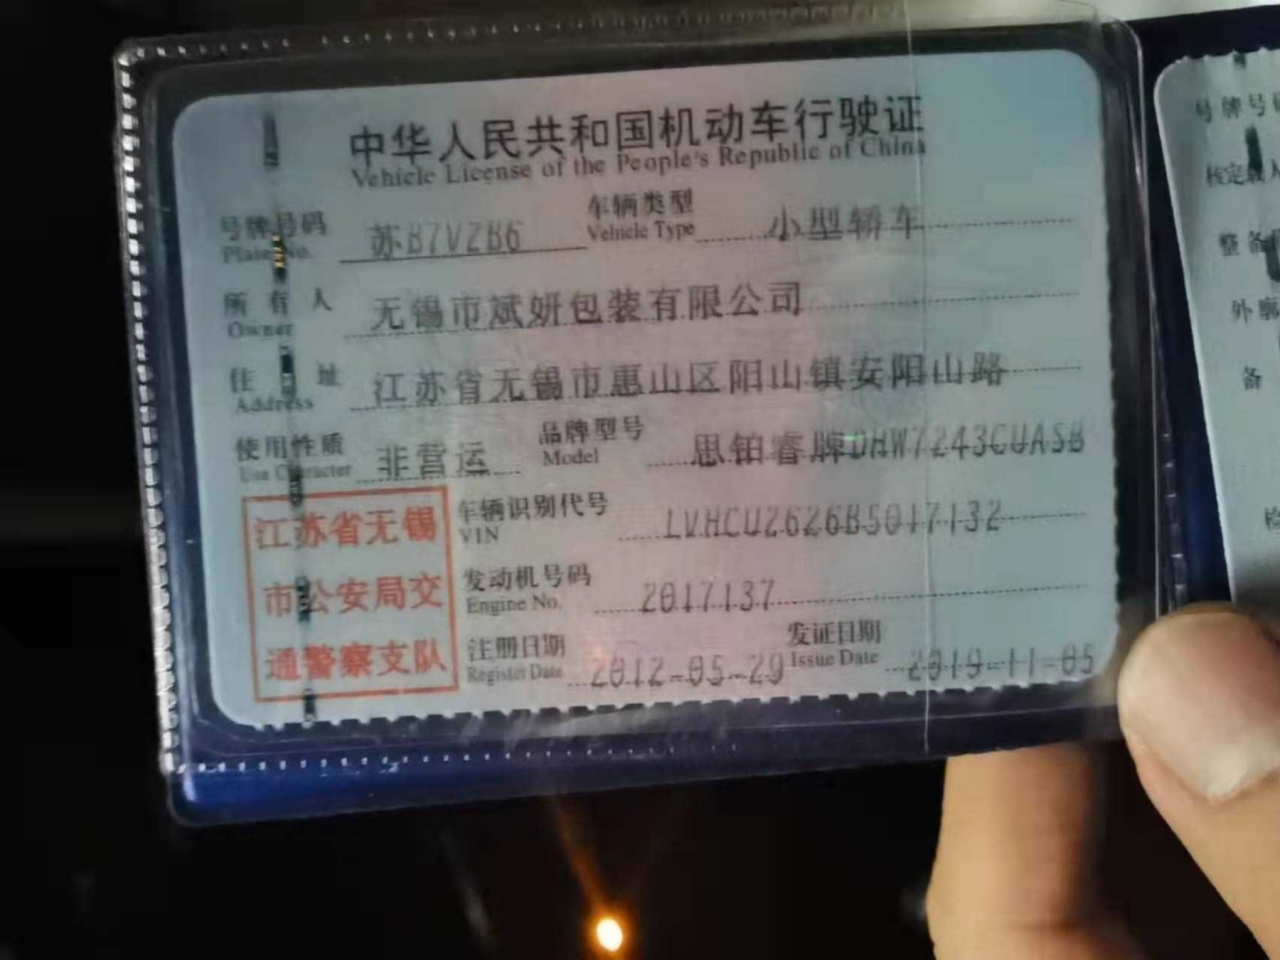 中华人民共和国机动车行驶证
Vehicle License of the People's Republic of China
号牌号码 苏B7VZB6 车辆类型 小型轿车
Plate No. Vehicle Type
所有人 无锡市斌妍包装有限公司
Owner
住址 江苏省无锡市惠山区阳山镇安阳山路
Address
使用性质 非营运 品牌型号 思铂睿牌DHW7243CUASB
Use Character Model
江苏省无锡
市公安局交
通警察支队
车辆识别代号 LVHCU2626B5017132
VIN
发动机号码 2017137
Engine No.
注册日期 2012-05-29 发证日期 2019-11-05
Register Date Issue Date
号牌号
核定载人
整备
外廓
备
检